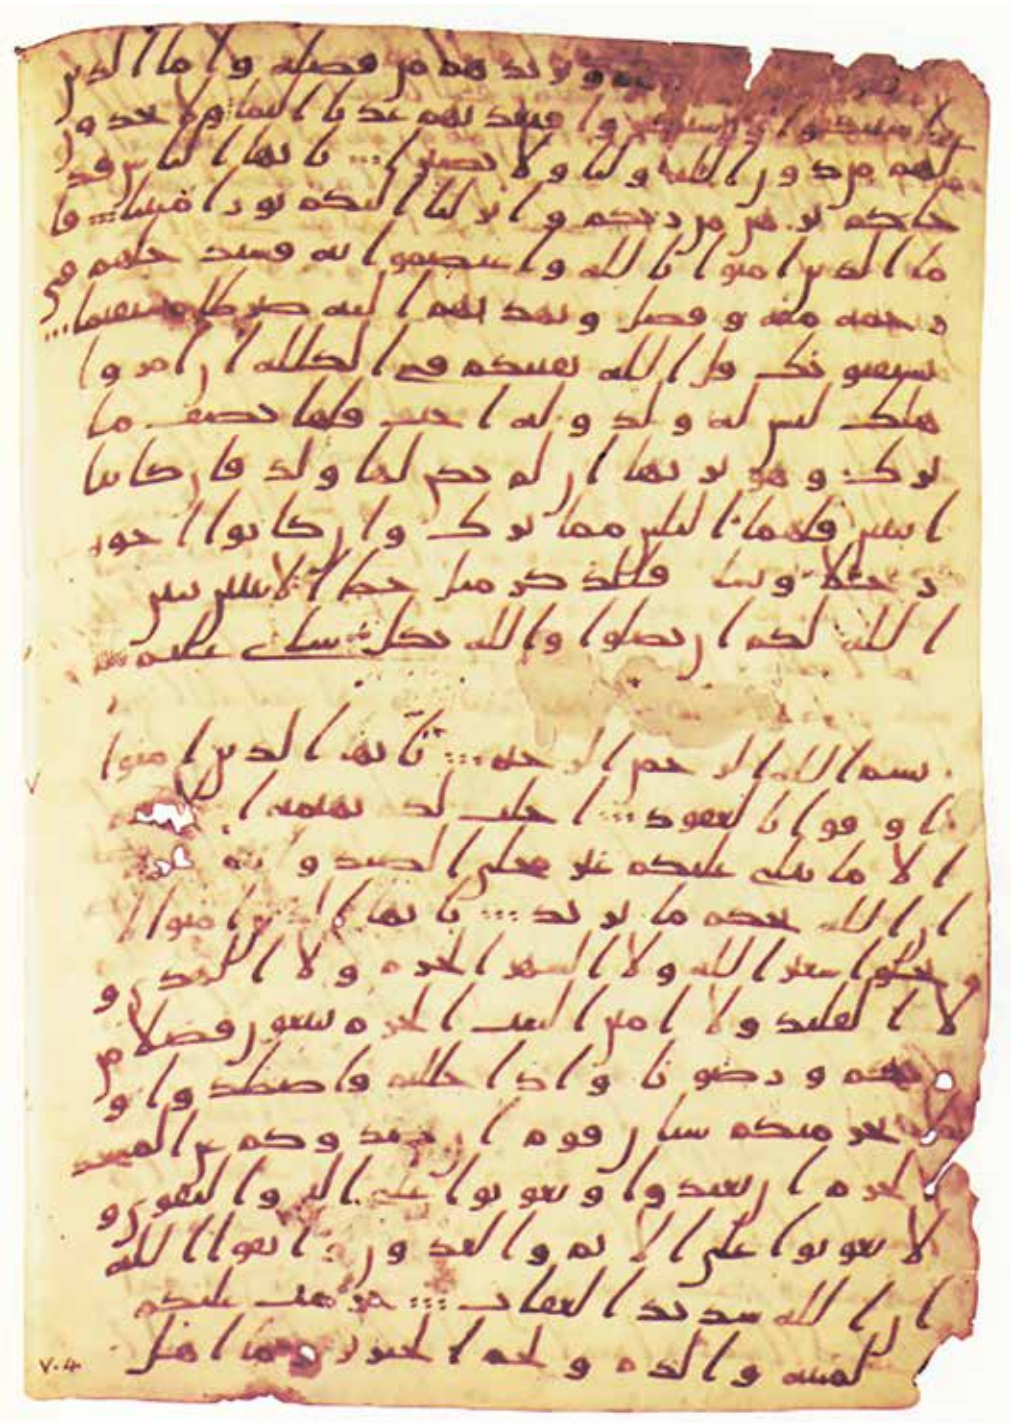 ويزيدهم من فضله واما الذين
استنكفوا واستكبروا فيعذبهم عذابا اليما ولا يجدون
لهم من دون الله وليا ولا نصيرا يايها الناس قد
جاكم برهن من ربكم وانزلنا اليكم نورا مبينا فا
ما الذين امنوا بالله واعتصموا به فسيدخلهم في
رحمه منه وفضل ويهديهم اليه صرطا مستقيما
يستفتونك قل الله يفتيكم في الكلله ان امروا
هلك ليس له ولد وله اخت فلها نصف ما
ترك وهو يرثها ان لم يكن لها ولد فان كانتا
اثنتين فلهما الثلثن مما ترك وان كانوا اخوه
رجلا ونسا فللذكر مثل حظ الانثيين يبين
الله لكم ان تضلوا والله بكل شاي عليم
بسم الله الرحمن الرحيم يايها الذين امنوا
اوفوا بالعقود احلت لكم بهيمه
الا ما يتلى عليكم غير محلي الصيد وانتم
ان الله يحكم ما يريد يايها الذين امنوا لا
تحلوا شعير الله ولا الشهر الحرم ولا الهدي و
لا القليد ولا امين البيت الحرم يبتغون فضلا من
ربهم ورضونا واذا حللتم فاصطدوا و
لا يجرمنكم شنان قوم ان صدوكم عن المسجد
الحرم ان تعتدوا وتعونوا على البر والتقوى و
لا تعونوا على الاثم والعدون واتقوا الله
ان الله شديد العقاب حرمت عليكم
الميته والدم ولحم الخنزير وما اهل